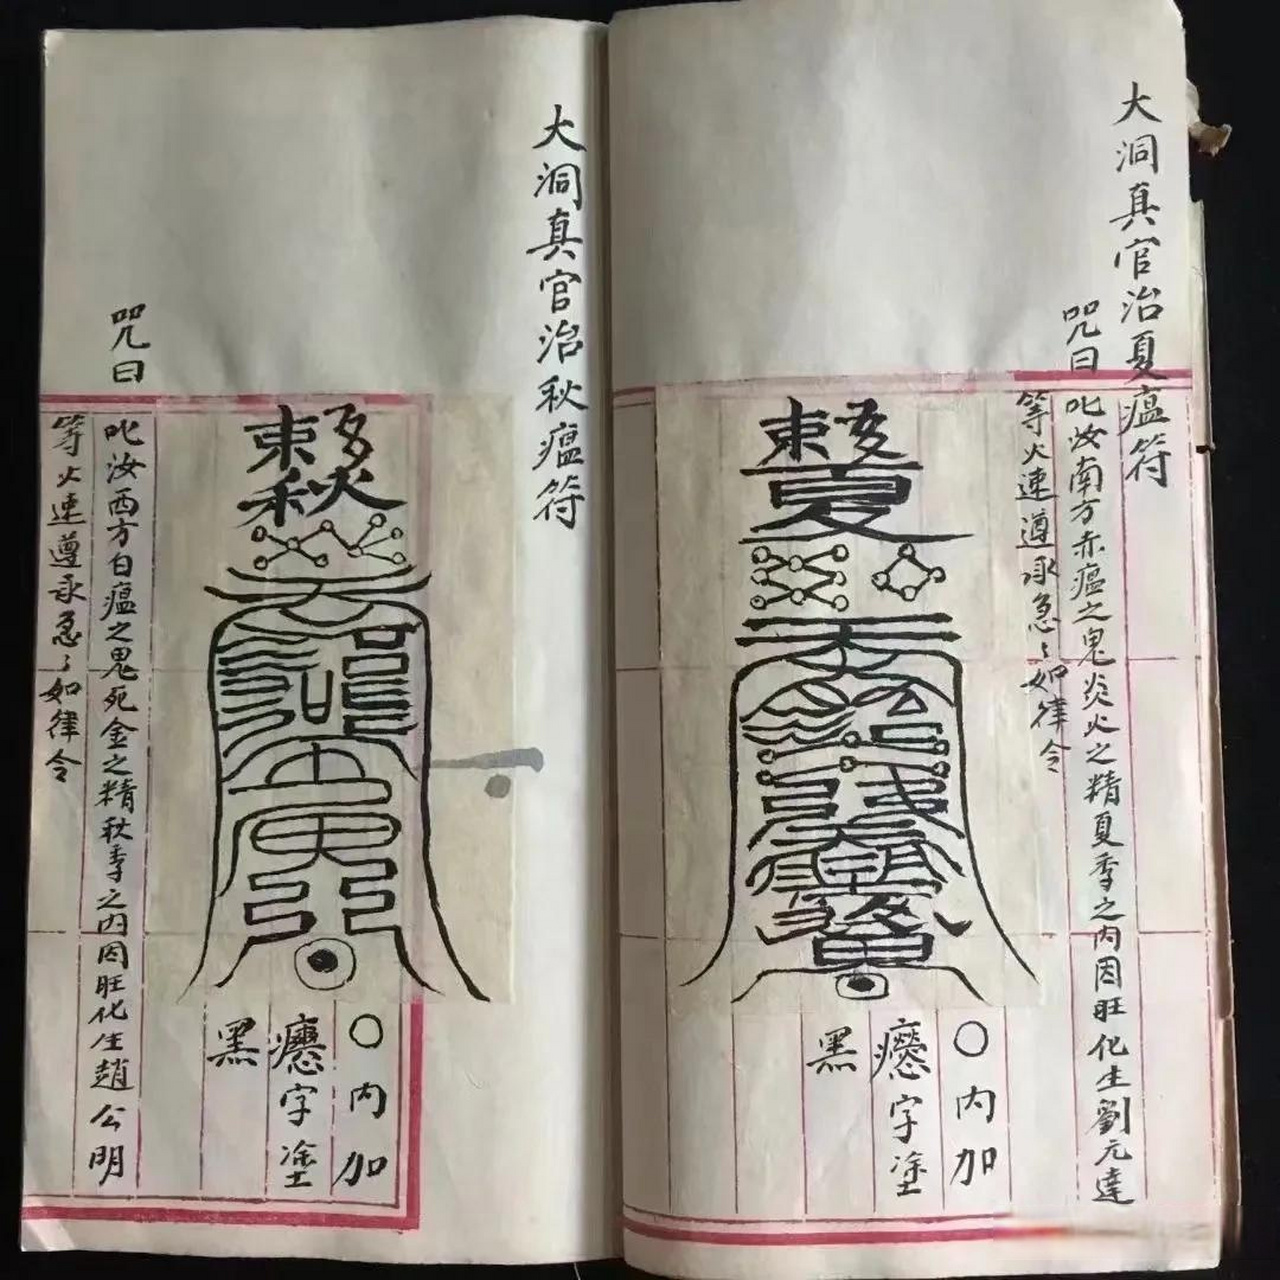 大洞真官治夏瘟符
咒曰
叱汝南方赤瘟之鬼炎火之精夏季之内因旺化生劉元達
等火速遵承急〻如律令
敕
夏
〇内加
字塗
黑
大洞真官治秋瘟符
敕
秋
〇内加
字塗
黑
咒曰
叱汝西方白瘟之鬼死金之精秋季之内因旺化生趙公明
等火速遵承急〻如律令